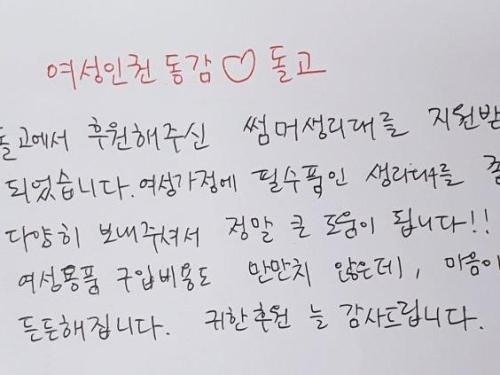 여성인권 동감♡돌고
돌고에서 후원해주신 썸머생리대를 지원받
되었습니다. 여성가정에 필수품인 생리대를 좀
다양히 보내주셔서 정말 큰 도움이 됩니다!!
여성용품 구입비용도 만만치 않은데, 마음이
든든해집니다. 귀한후원 늘 감사드립니다.